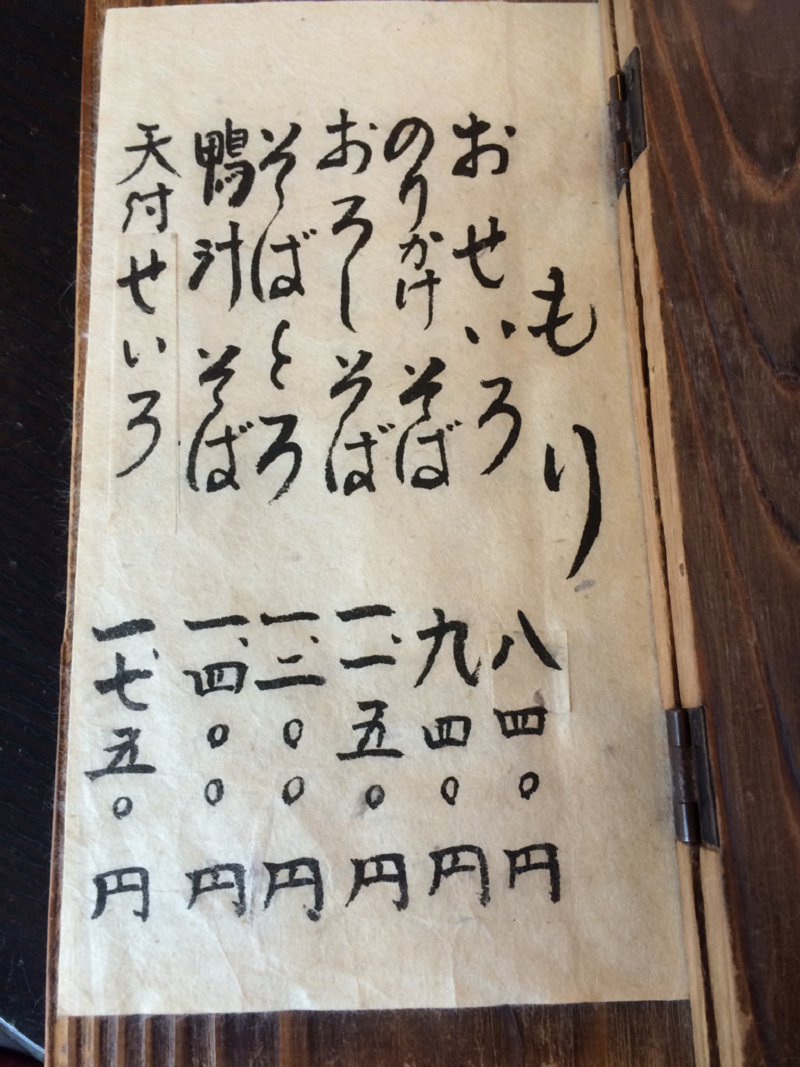 もり
おせいろ 八四〇円
のりかけそば 九四〇円
おろしそば 一、一五〇円
そばとろ 一、二〇〇円
鴨汁そば 一、四〇〇円
天付せいろ 一、七五〇円